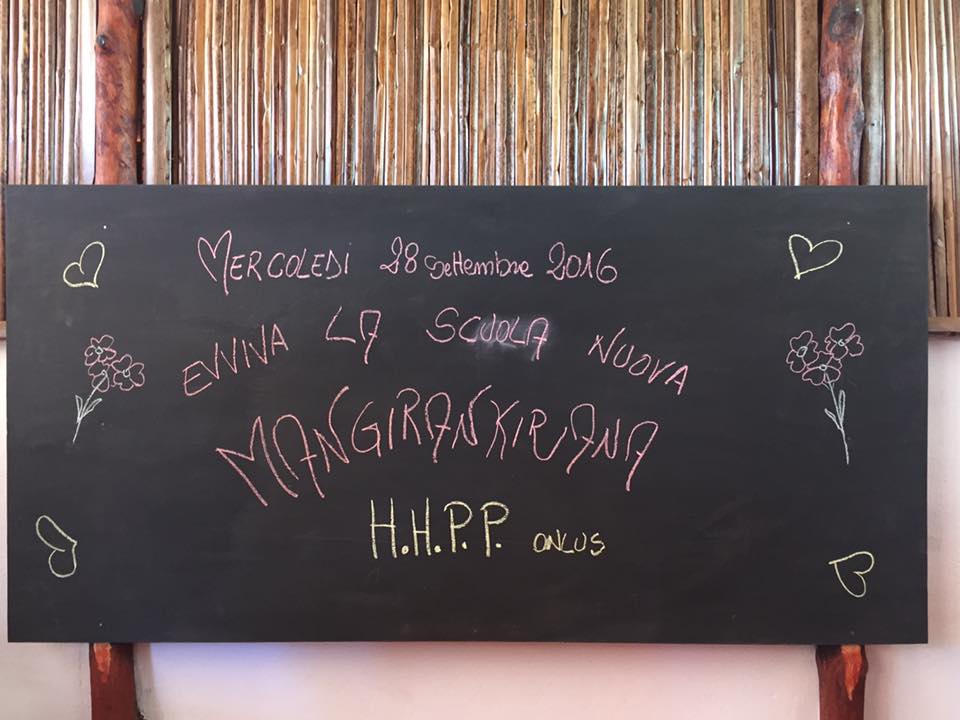 MERCOLEDI 28 Settembre 2016
EVVIVA LA SCUOLA NUOVA
MANGIRANKIRIANA
H.H.P.P. ONLUS